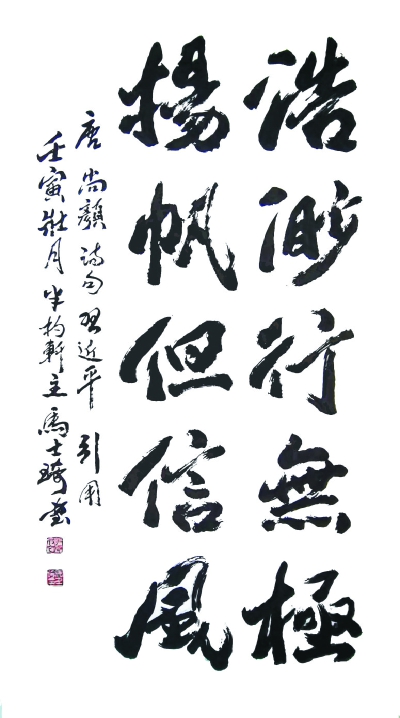 浩渺行無極
揚帆但信風
唐尚顔詩句習近平引用
壬寅壯月半杓軒主馬士琦書